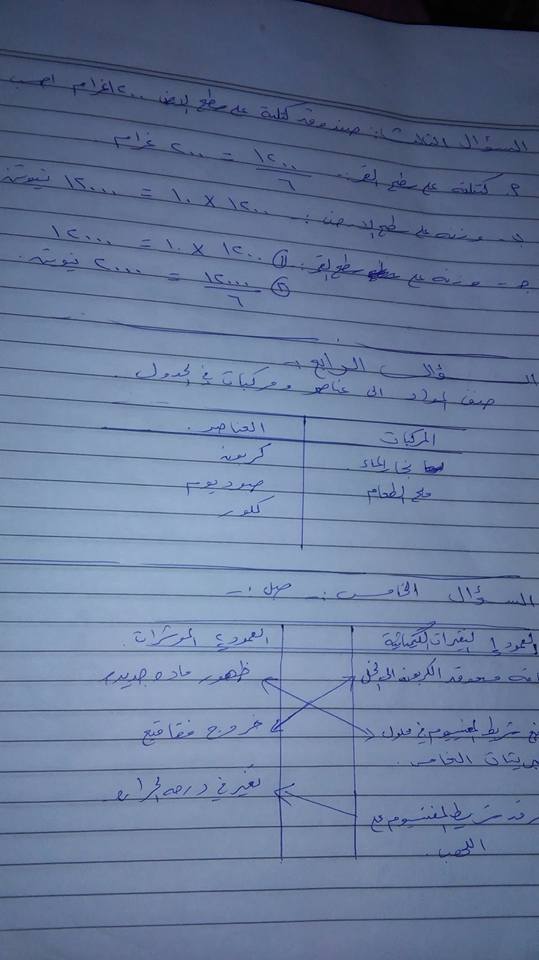 السؤال الثالث : صندوق كتلته على سطح الارض ١٢٠٠ غرام احسب
٢. كتلته على سطح القمر = ١٢٠٠ / ٦ = ٢٠٠ غرام
ب- وزنه على سطح الارض :- ١٢٠٠ × ١٠ = ١٢٠٠٠ نيوتن
ج- وزنه على سطح القمر: ① ١٢٠٠ × ١٠ = ١٢٠٠٠
② ١٢٠٠٠ / ٦ = ٢٠٠٠ نيوتن.
ؤال الرابع :-
صنف المواد الى عناصر ومركبات في الجدول.
المركبات العناصر.
بخار الماء كربون
ملح الطعام صوديوم
كلور
السؤال الخامس :- صل :-
العمود ١ التغيرات الكيميائية العمود ٢ المؤشرات
الكربون الى الخل ظهور مادة جديدة
شريط المغنيسيوم في محلول خروج فقاقيع
كبريتات النحاس.
شريط المغنيسيوم مع تغير في درجة الحرارة
اللهب.